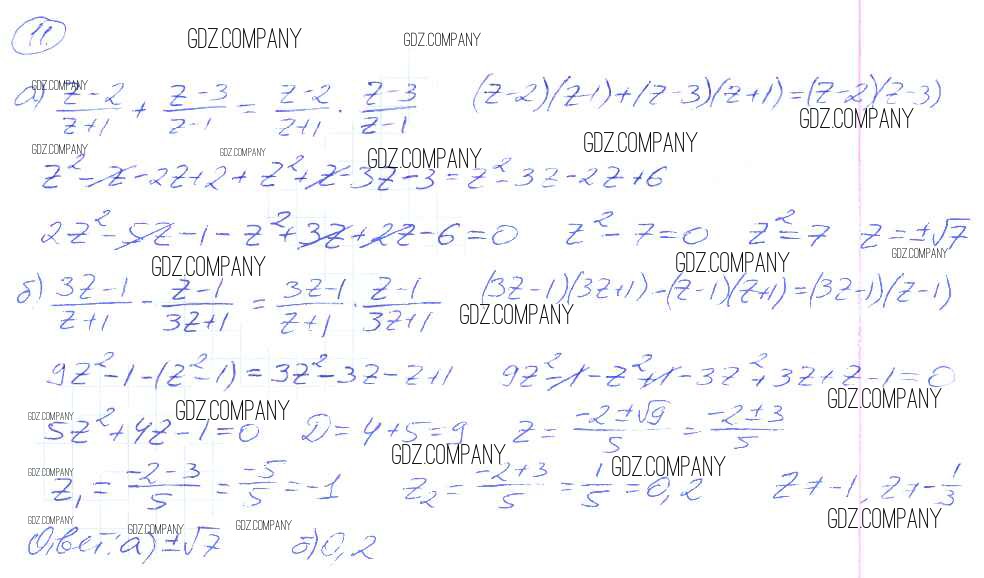 11.
GDZ.COMPANY GDZ.COMPANY
GDZ.COMPANY
а) (z-2)/(z+1) + (z-3)/(z-1) = (z-2)/(z+1) · (z-3)/(z-1)   (z-2)(z-1)+(z-3)(z+1)=(z-2)(z-3)
GDZ.COMPANY
GDZ.COMPANY GDZ.COMPANY GDZ.COMPANY GDZ.COMPANY
z²-z-2z+2+z²+z-3z-3=z²-3z-2z+6
2z²-5z-1-z²+3z+2z-6=0   z²-7=0   z²=7   z=±√7
GDZ.COMPANY GDZ.COMPANY GDZ.COMPANY
б) (3z-1)/(z+1) - (z-1)/(3z+1) = (3z-1)/(z+1) · (z-1)/(3z+1)   (3z-1)(3z+1)-(z-1)(z+1)=(3z-1)(z-1)
GDZ.COMPANY
9z²-1-(z²-1)=3z²-3z-z+1   9z²-1-z²+1-3z²+3z+z-1=0
GDZ.COMPANY GDZ.COMPANY GDZ.COMPANY
5z²+4z-1=0   D=4+5=9   z=(-2±√9)/5=(-2±3)/5
GDZ.COMPANY GDZ.COMPANY GDZ.COMPANY
z₁=(-2-3)/5=-5/5=-1   z₂=(-2+3)/5=1/5=0,2   z≠-1, z≠-1/3
GDZ.COMPANY GDZ.COMPANY GDZ.COMPANY GDZ.COMPANY
Ответ: а) ±√7   б) 0,2